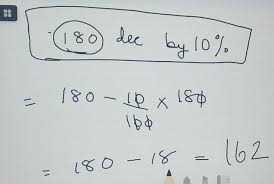 180 dec by 10%
= 180 - 10/100 × 180
= 180 - 18 = 162